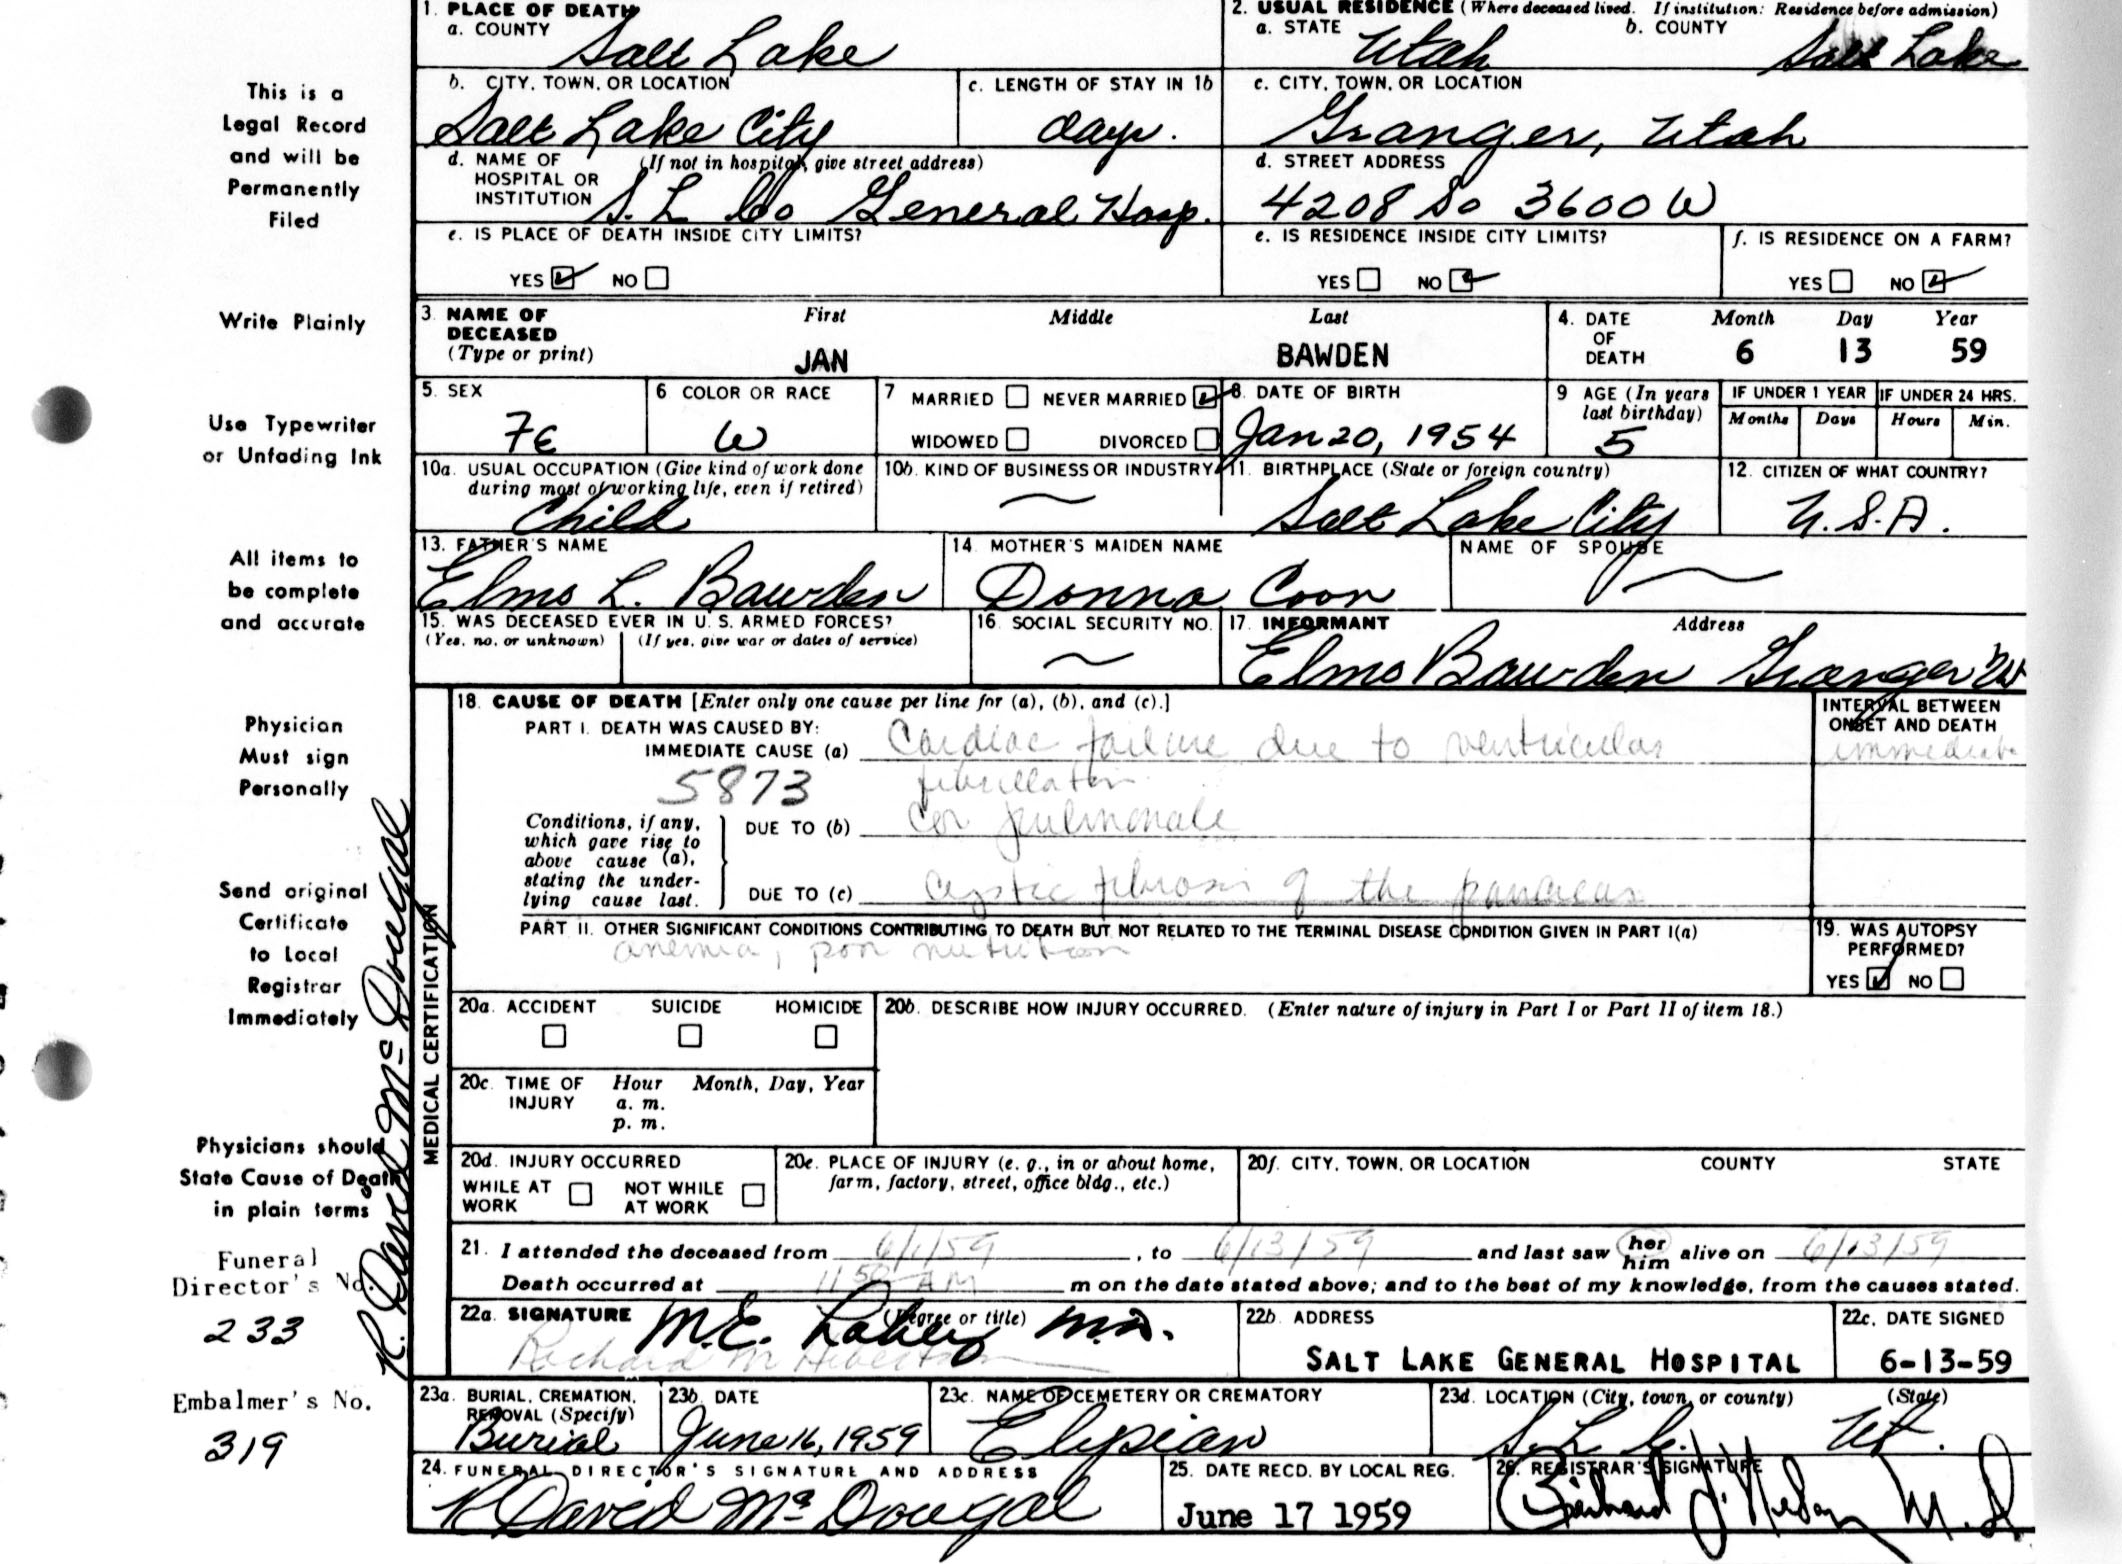 1. PLACE OF DEATH
a. COUNTY Salt Lake
2. USUAL RESIDENCE (Where deceased lived. If institution: Residence before admission)
a. STATE Utah b. COUNTY Salt Lake
b. CITY, TOWN, OR LOCATION Salt Lake City
c. LENGTH OF STAY IN 1b days.
c. CITY, TOWN, OR LOCATION Granger, Utah
d. NAME OF HOSPITAL OR INSTITUTION (If not in hospital, give street address) S. L. Co General Hosp.
d. STREET ADDRESS 4208 So 3600 W
e. IS PLACE OF DEATH INSIDE CITY LIMITS?
YES NO
e. IS RESIDENCE INSIDE CITY LIMITS?
YES NO
f. IS RESIDENCE ON A FARM?
YES NO
3. NAME OF DECEASED (Type or print) First Middle Last
JAN BAWDEN
4. DATE OF DEATH Month Day Year
6 13 59
5. SEX Fe
6 COLOR OR RACE W
7 MARRIED NEVER MARRIED
WIDOWED DIVORCED
8. DATE OF BIRTH Jan 20, 1954
9 AGE (In years last birthday) 5
IF UNDER 1 YEAR Months Days
IF UNDER 24 HRS. Hours Min.
10a. USUAL OCCUPATION (Give kind of work done during most of working life, even if retired) Child
10b. KIND OF BUSINESS OR INDUSTRY
11. BIRTHPLACE (State or foreign country) Salt Lake City
12. CITIZEN OF WHAT COUNTRY? U.S.A.
13. FATHER'S NAME Elmo L. Bawden
14. MOTHER'S MAIDEN NAME Donna Coon
NAME OF SPOUSE
15. WAS DECEASED EVER IN U. S. ARMED FORCES?
(Yes, no, or unknown) (If yes, give war or dates of service)
16. SOCIAL SECURITY NO.
17. INFORMANT Address
Elmo Bawden Granger Ut
MEDICAL CERTIFICATION
18. CAUSE OF DEATH [Enter only one cause per line for (a), (b), and (c).]
PART I. DEATH WAS CAUSED BY:
IMMEDIATE CAUSE (a) Cardiac failure due to ventricular
fibrillation
5873
Conditions, if any, which gave rise to above cause (a), stating the underlying cause last.
DUE TO (b) Cor pulmonale
DUE TO (c) Cystic fibrosis of the pancreas
INTERVAL BETWEEN ONSET AND DEATH
immediate
PART II. OTHER SIGNIFICANT CONDITIONS CONTRIBUTING TO DEATH BUT NOT RELATED TO THE TERMINAL DISEASE CONDITION GIVEN IN PART I(a)
anemia, poor nutrition
19. WAS AUTOPSY PERFORMED?
YES NO
20a. ACCIDENT SUICIDE HOMICIDE
20b. DESCRIBE HOW INJURY OCCURRED. (Enter nature of injury in Part I or Part II of item 18.)
20c. TIME OF INJURY Hour Month, Day, Year
a. m.
p. m.
20d. INJURY OCCURRED
WHILE AT WORK NOT WHILE AT WORK
20e. PLACE OF INJURY (e. g., in or about home, farm, factory, street, office bldg., etc.)
20f. CITY, TOWN, OR LOCATION COUNTY STATE
21. I attended the deceased from 6/1/59, to 6/13/59 and last saw her him alive on 6/13/59
Death occurred at 11 50 AM m on the date stated above; and to the best of my knowledge, from the causes stated.
22a. SIGNATURE (Degree or title) M.E. Lahey M.D.
Richard M
22b. ADDRESS
SALT LAKE GENERAL HOSPITAL
22c. DATE SIGNED
6-13-59
23a. BURIAL, CREMATION, REMOVAL (Specify) Burial
23b. DATE June 16, 1959
23c. NAME OF CEMETERY OR CREMATORY Elysian
23d. LOCATION (City, town, or county) (State)
S. L. C. Ut.
24. FUNERAL DIRECTOR'S SIGNATURE AND ADDRESS
R David McDougal
25. DATE RECD. BY LOCAL REG.
June 17 1959
26. REGISTRAR'S SIGNATURE
M.D.
This is a
Legal Record
and will be
Permanently
Filed
Write Plainly
Use Typewriter
or Unfading Ink
All items to
be complete
and accurate
Physician
Must sign
Personally
Send original
Certificate
to Local
Registrar
Immediately
Physicians should
State Cause of Death
in plain terms
Funeral
Director's No
233
Embalmer's No.
319
R. David McDougal